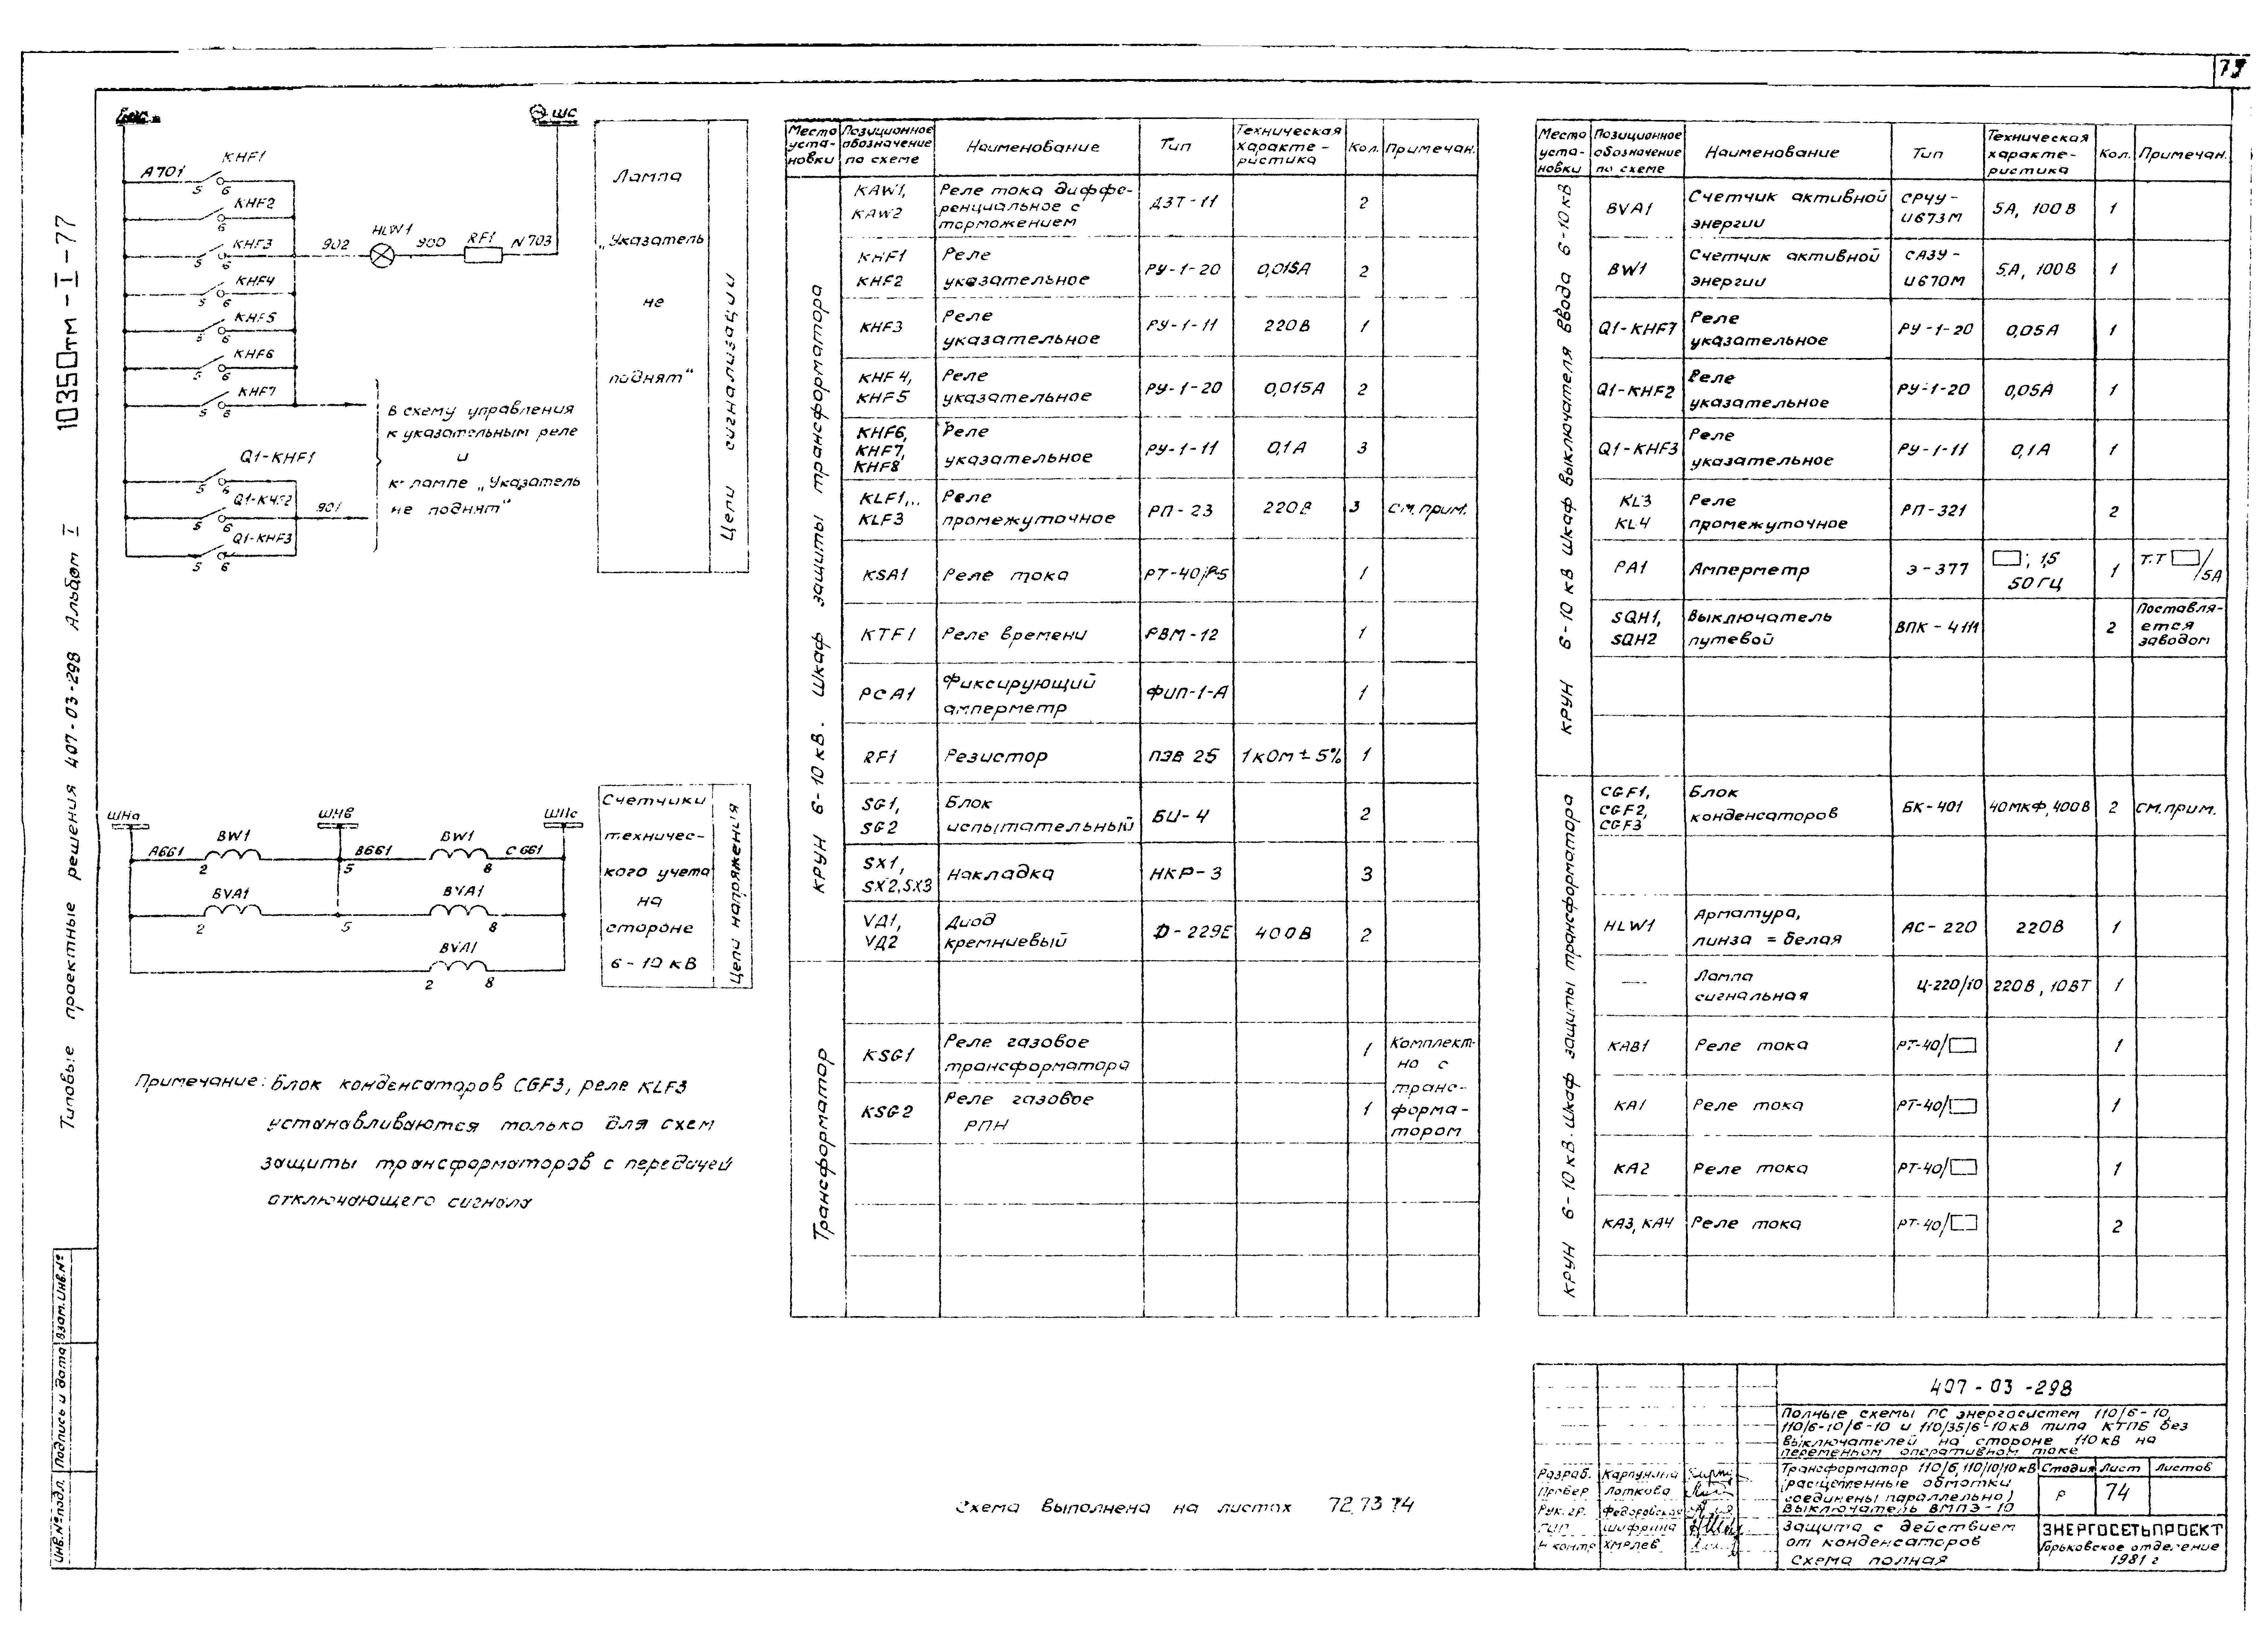 10350тм-I-77
Типовые проектные решения 407-03-298 Альбом I
Инв.№подл. Подпись и дата Взам.инв.№
ШС
А701
KHF1
5 6
KHF2
6
KHF3
5 6
902
HLW1
900
RF1
N703
KHF4
5 6
KHF5
5 6
KHF6
5 6
KHF7
5 6
Q1-KHF1
5 6
Q1-KHF2
5 6
901
Q1-KHF3
5 6
в схему управления
к указательным реле
и
к лампе „Указатель
не поднят“
Лампа
„Указатель
не
поднят“
Цепи сигнализации
ШНа
ШНв
ШНс
А661
BW1
2
В661
5
BW1
8
С661
BVA1
2
5
BVA1
8
BVA1
2
8
Счетчики
техничес-
кого учета
на
стороне
6-10 кВ
Цепи напряжения
Примечание: Блок конденсаторов CGF3, реле KLF3
устанавливаются только для схем
защиты трансформаторов с передачей
отключающего сигнала
Место уста- новки
Позиционное обозначение по схеме
Наименование
Тип
Техническая характе- ристика
Кол.
Примечан.
КРУН 6-10 кВ. Шкаф защиты трансформатора
KAW1, KAW2 Реле тока диффе- ренциальное с торможением ДЗТ-11 2
KHF1 KHF2 Реле указательное РУ-1-20 0,015А 2
KHF3 Реле указательное РУ-1-11 220В 1
KHF4, KHF5 Реле указательное РУ-1-20 0,015А 2
KHF6, KHF7, KHF8 Реле указательное РУ-1-11 0,1А 3
KLF1,.. KLF3 Реле промежуточное РП-23 220В 3 см.прим.
KSA1 Реле тока 1
KTF1 Реле времени РВМ-12 1
PCA1 Фиксирующий амперметр ФИП-1-А 1
RF1 Резистор ПЭВ 25 1кОм±5% 1
SG1, SG2 Блок испытательный БИ-4 2
SX1, SX2,SX3 Накладка НКР-3 3
VД1, VД2 Диод кремниевый Д-229Е 400В 2
Трансформатор
KSG1 Реле газовое трансформатора 1
KSG2 Реле газовое РПН 1
Комплект- но с транс- форма- тором
Место уста- новки
Позиционное обозначение по схеме
Наименование
Тип
Техническая характе- ристика
Кол.
Примечан.
КРУН 6-10 кВ Шкаф выключателя ввода 6-10кВ
BVA1 Счетчик активной энергии СРЧУ-И673М 5А, 100В 1
BW1 Счетчик активной энергии САЗУ-И670М 5А, 100В 1
Q1-KHF7 Реле указательное РУ-1-20 0,05А 1
Q1-KHF2 Реле указательное РУ-1-20 0,05А 1
Q1-KHF3 Реле указательное РУ-1-11 0,1А 1
KL3 KL4 Реле промежуточное РП-321 2
PA1 Амперметр Э-377 ; 1,5 50ГЦ 1 Т.Т /5А
SQH1, SQH2 Выключатель путевой ВПК-4111 2 Поставля- ется заводом
КРУН 6-10кВ. Шкаф защиты трансформатора
CGF1, CGF2, CGF3 Блок конденсаторов БК-401 40мкф,400В 2 см.прим.
HLW1 Арматура, линза = белая АС-220 220В 1
— Лампа сигнальная Ц-220/10 220В, 10ВТ 1
KAB1 Реле тока РТ-40/ 1
KA1 Реле тока РТ-40/ 1
KA2 Реле тока РТ-40/ 1
KA3, KA4 Реле тока РТ-40/ 2
Схема выполнена на листах 72,73 74
407-03-298
Полные схемы ПС энергосистем 110/6-10,
110/6-10/6-10 и 110/35/6-10кВ типа КТПБ без
выключателей на стороне 110кВ на
переменном оперативном токе
Трансформатор 110/6, 110/10/10кВ
(расщепленные обмотки
соединены параллельно)
выключатель ВМПЭ-10
Стадия Лист Листов
Р 74
Защита с действием
от конденсаторов
Схема полная
ЭНЕРГОСЕТЬПРОЕКТ
Горьковское отделение
1981 г
Разраб. Карпунина
Провер Лоткова
Рук.гр. Федоровская
ГИП Шифрина
Н контр Хмелев